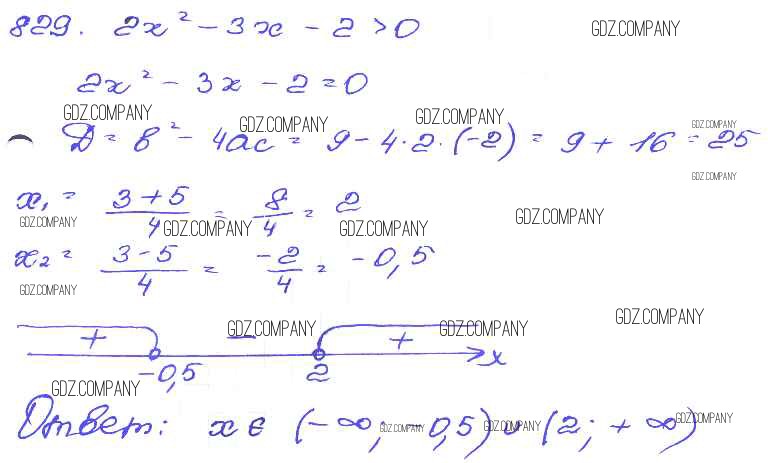 829. 2x² - 3x - 2 > 0
GDZ.COMPANY
2x² - 3x - 2 = 0
GDZ.COMPANY GDZ.COMPANY GDZ.COMPANY GDZ.COMPANY
Д = в² - 4ac = 9 - 4·2·(-2) = 9 + 16 = 25
GDZ.COMPANY
x₁ = (3+5)/4 = 8/4 = 2
GDZ.COMPANY GDZ.COMPANY GDZ.COMPANY GDZ.COMPANY
x₂ = (3-5)/4 = -2/4 = -0,5
GDZ.COMPANY
GDZ.COMPANY GDZ.COMPANY GDZ.COMPANY
+ - + x
-0,5 2
GDZ.COMPANY
Ответ: x ∈ (-∞; -0,5) ∪ (2; +∞)
GDZ.COMPANY GDZ.COMPANY GDZ.COMPANY